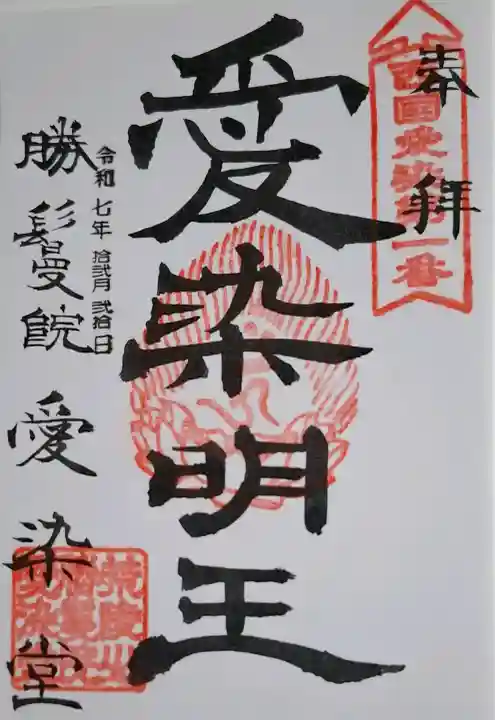 奉拝
西国愛染第一番
愛染明王
令和七年 拾弐月 弐拾日
勝鬘院 愛染堂